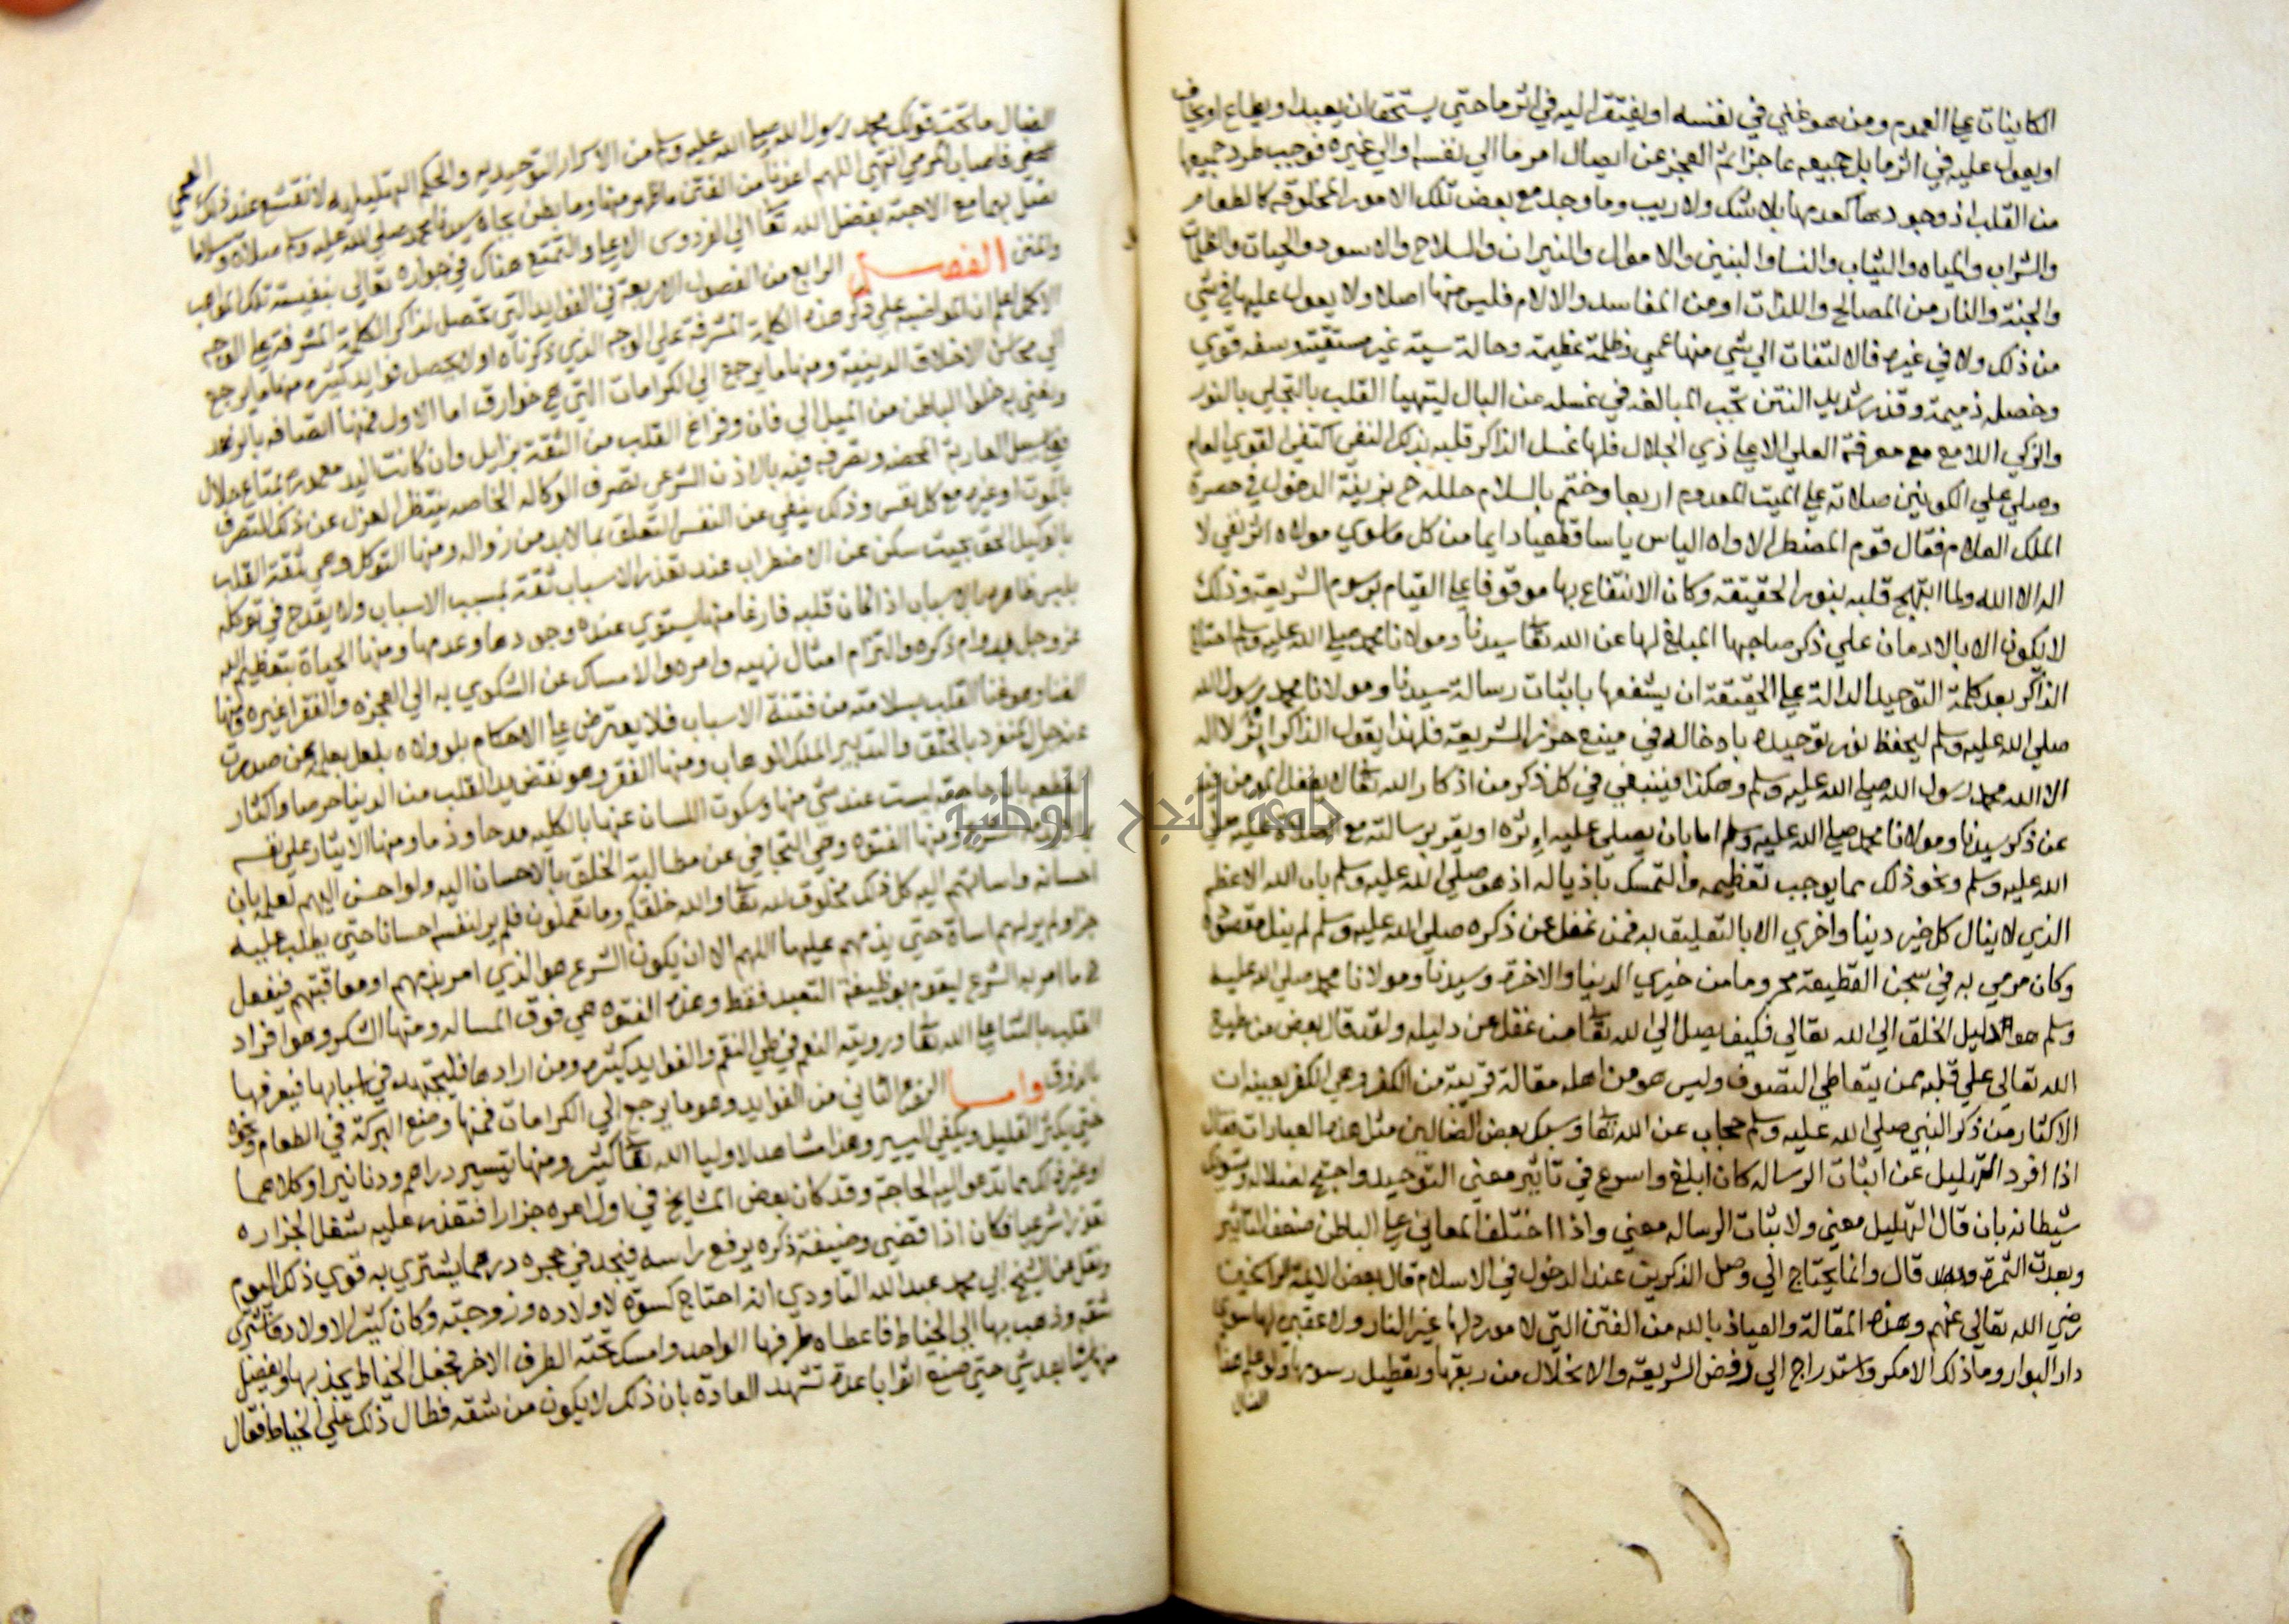 الكاينات علي العموم ومن هو غني في نفسه او يفتقر اليه في اثر ما حتي يستحق ان يعبد او يطاع او يخاف
او يعول عليه في اثر ما بل جميعه عاجز اتم العجز عن ايصال امر ما الي نفسه او الي غيره فوجب طرد جميعها
من القلب اذ وجودها كعدمها بلا شك ولا ريب وما وجد مع بعض تلك الامور المخلوقه كالطعام
والشراب والمياه والثياب والنسا والبنين والاموال والنيران والسلاح والاسود والحيات والظلمات
والجنة والنار من المصالح واللذات او من المفاسد والالام فليس منها اصلا ولا يعول عليها في شي
من ذلك ولا في غيره فالالتفات الي شي منها عمي وظلمة عظيمة وحالة سيئة غير مستقيمة وسفه قوي
وخصله ذميمة وقذر شديد النتن تجب المبالغه في غسله عن البال ليتهيا القلب بالتجلي بالنور
والزكي اللامع مع معرفة العلي الاعلي ذي الجلال فلما غسل الذاكر قلبه بذلك النفي اكتفي القوي العام
وصلي علي الكونين صلاته علي الميت المعدوم اربعا وختم بالسلام حلله ح بزينة الدخول في حضرة
الملك العلام فقال قوم المضطر الاواه الياس ياسا قطعيا دايما من كل ما سوي مولاه الزنفي لا
اله الا الله ولما ابتهج قلبه بنور الحقيقة وكان الانتفاع بها موقوفا علي القيام برسوم الشريعة وذلك
لا يكون الا بالادمان علي ذكر صاحبها المبلغ لها عن الله تعا سيدنا ومولانا محمد صلي الله عليه وسلم احتاج
الذاكر بعد كلمة التوحيد الدالة علي الحقيقة ان يشفعها باثبات رسالة سيدنا ومولانا محمد رسول الله
صلي الله عليه وسلم ليحفظ نور توحيده بادخاله في منيع حرز الشريعة فلهذا يقول الذاكر اثر لا اله
الا الله محمد رسول الله صلي الله عليه وسلم وهكذا فينبغي في كل ذكر من اذكار الله تعالي ان لا يغفل فيه
عن ذكر سيدنا ومولانا محمد صلي الله عليه وسلم اما بان يصلي عليه اثره او يقر برسالته مع الصلاة عليه صلي
الله عليه وسلم ونحو ذلك مما يوجب تعظيمه والتمسك باذياله اذ هو صلي الله عليه وسلم باب الله الاعظم
الذي لا ينال كل خير دينا واخري الا بالتعليق به فمن غفل عن ذكره صلي الله عليه وسلم لم ينل مقصوده
وكان مرمي به في سجن القطيعة محروما من خيري الدنيا والاخرة وسيدنا ومولانا محمد صلي الله عليه
وسلم هو الدليل الخلق الي الله تعالي فكيف يصل الي الله تعا من غفل عن دليله ولقد قال بعض من طبع
الله تعالي علي قلبه ممن يتعاطي التصوف وليس هو من اهله مقالة قريبة من الكفر وهي الكفر بعينه ان
الاكثار من ذكر النبي صلي الله عليه وسلم حجاب عن الله تعا وسبك بعض الضالين مثل هذه العبارات فقال
اذا افرد التهليل عن اثبات الرساله كان ابلغ واسرع في تاثير معني التوحيد واحتج لضلاله وتسويل
شيطانه بان قال التهليل معني ولاثبات الرساله معني واذا اختلف المعاني علي الباطن ضعف التاثير
وبعدت الثمرة قال وانما يحتاج الي وصل الذكرين عند الدخول في الاسلام قال بعض الايمة الراسخين
رضي الله تعالي عنهم وهذه المقالة والعياذ بالله من الفتن التي لا مورد لها غير النار ولا عقبي لها سوي
دار البوار وما ذلك الا مكر واستدراج الي رفض الشريعة والانحلال من ربقها وتعطيل رسومها ولو علم هذا
الضال
الضال ما تحت قولك محمد رسول الله صلي الله عليه وسلم من الاسرار التوحيدية والحكم التهليليه لانقشع عنه ذلك العمي
انتهي اللهم اعذنا من الفتن ما ظهر منها وما بطن بجاه سيدنا محمد صلي الله عليه وسلم صلاة وسلاما
بهما مع الاحبة بفضل الله تعا الي الفردوس الاعلي والتمتع هناك في جواره تعالي بنفيسة تلك المواهب
والمنن الفصل الرابع من الفصول الاربعة في الفوايد التي تحصل لذاكر الكلمة المشرفة علي الوجه
الاكمل اعلم ان المواظبه علي ذكر هذه الكلمة المشرفة علي الوجه الذي ذكرناه اولا يحصل فوايد كثيرة منها ما يرجع
الي محاسن الاخلاق الدينية ومنها ما يرجع الي الكرامات التي هي خوارق اما الاول فمنها اتصافه بالزهد
ونعني به خلو الباطن من الميل الي فان وفراغ القلب من الثقة بزايل وان كانت اليد معمورة بمتاع حلال
فعلي سبيل العارية المحضه وتصرفه فيه بالاذن الشرعي تصرف الوكاله الخاصه ينتظر العزل عن ذلك التصرف
بالموت او غيره مع كل نفس وذلك ينفي عن النفس التعلق بما لابد من زواله ومنها التوكل وهي ثقة القلب
بالوكيل الحق بحيث يسكن عن الاضطراب عند تعذر الاسباب ثقة بمسبب الاسباب ولا يقدح في توكله
تلبس ظاهره بالاسباب اذا كان قلبه فارغا منها يستوي عنده وجودها وعدمها ومنها الحياة بتعظيم الله
عز وجل بدوام ذكره والتزام امتثال نهيه وامره والامساك عن الشكوي به الي العجزه والفقرا غيره ومنها
الغنا وهو غنا القلب بسلامته من فتنة الاسباب فلا يعترض علي الاحكام بلو ولا بلعل بعلمه بمن صدرت
المنفرد بالخلق والتدبير الملك الوهاب ومنها الفقر وهو نفض يد القلب من الدنيا حرصا واكثار
منها وسكوت اللسان عنها بالكليه مدحا وذما ومنها الايثار علي نفسه
ومنها الفتوه وهي التجافي عن مطالبة الخلق بالاحسان اليه ولو احسن اليهم لعلمه بان
احسانه واسائتهم اليه كل ذلك مخلوق لله تعا والله خلقكم وما تعملون فلم ير لنفسه احسانا حتي يطلب عليه
جزا ولم ير لهم اساة حتي يذمهم عليها اللهم الا ان يكون الشرع هو الذي امر بذمهم او معاقبتهم فيفعل
ما امر به الشرع ليقوم بوظيفة التعبد فقط وهذه الفتوه هي فوق المساله ومنها الشكر وهو افراد
القلب بالثنا علي الله تعا ورؤية النعم في طي النقم والفوايد كثيرة ومن ارادها فليجتهد في اسبابها فيعرفها
بالذوق واما النوع الثاني من الفوايد وهو ما يرجع الي الكرامات فمنها وضع البركة في الطعام ونحوه
حتي يكثر القليل ويكفي اليسير وهذا مشاهد لاوليا الله تعا كثير ومنها تيسير دراهم ودنانير او كلاهما
او غير ذلك مما تدعو اليه الحاجة وقد كان بعض المشايخ في اول امره جزارا فتعذر عليه شغل الجزاره
تعذرا شرعيا فكان اذا قضي وضيفة ذكره يرفع راسه فيجد في حجره درهما يشتري به قوي ذلك اليوم
ونقل عن الشيخ ابي محمد عبد الله التاودي انه احتاج كسوة لاولاده وزوجته وكان كثير الاولاد فاشتري
شقة وذهب بها الي الخياط فاعطاه طرفها الواحد وامسك تحته الطرف الاخر فجعل الخياط يجذبها ويفصل
منها شيا بعد شي حتي صنع اثوابا عدة تشهد العادة بان ذلك لا يكون من شقه فطال ذلك علي الخياط فقال
جامعة النجاح الوطنية